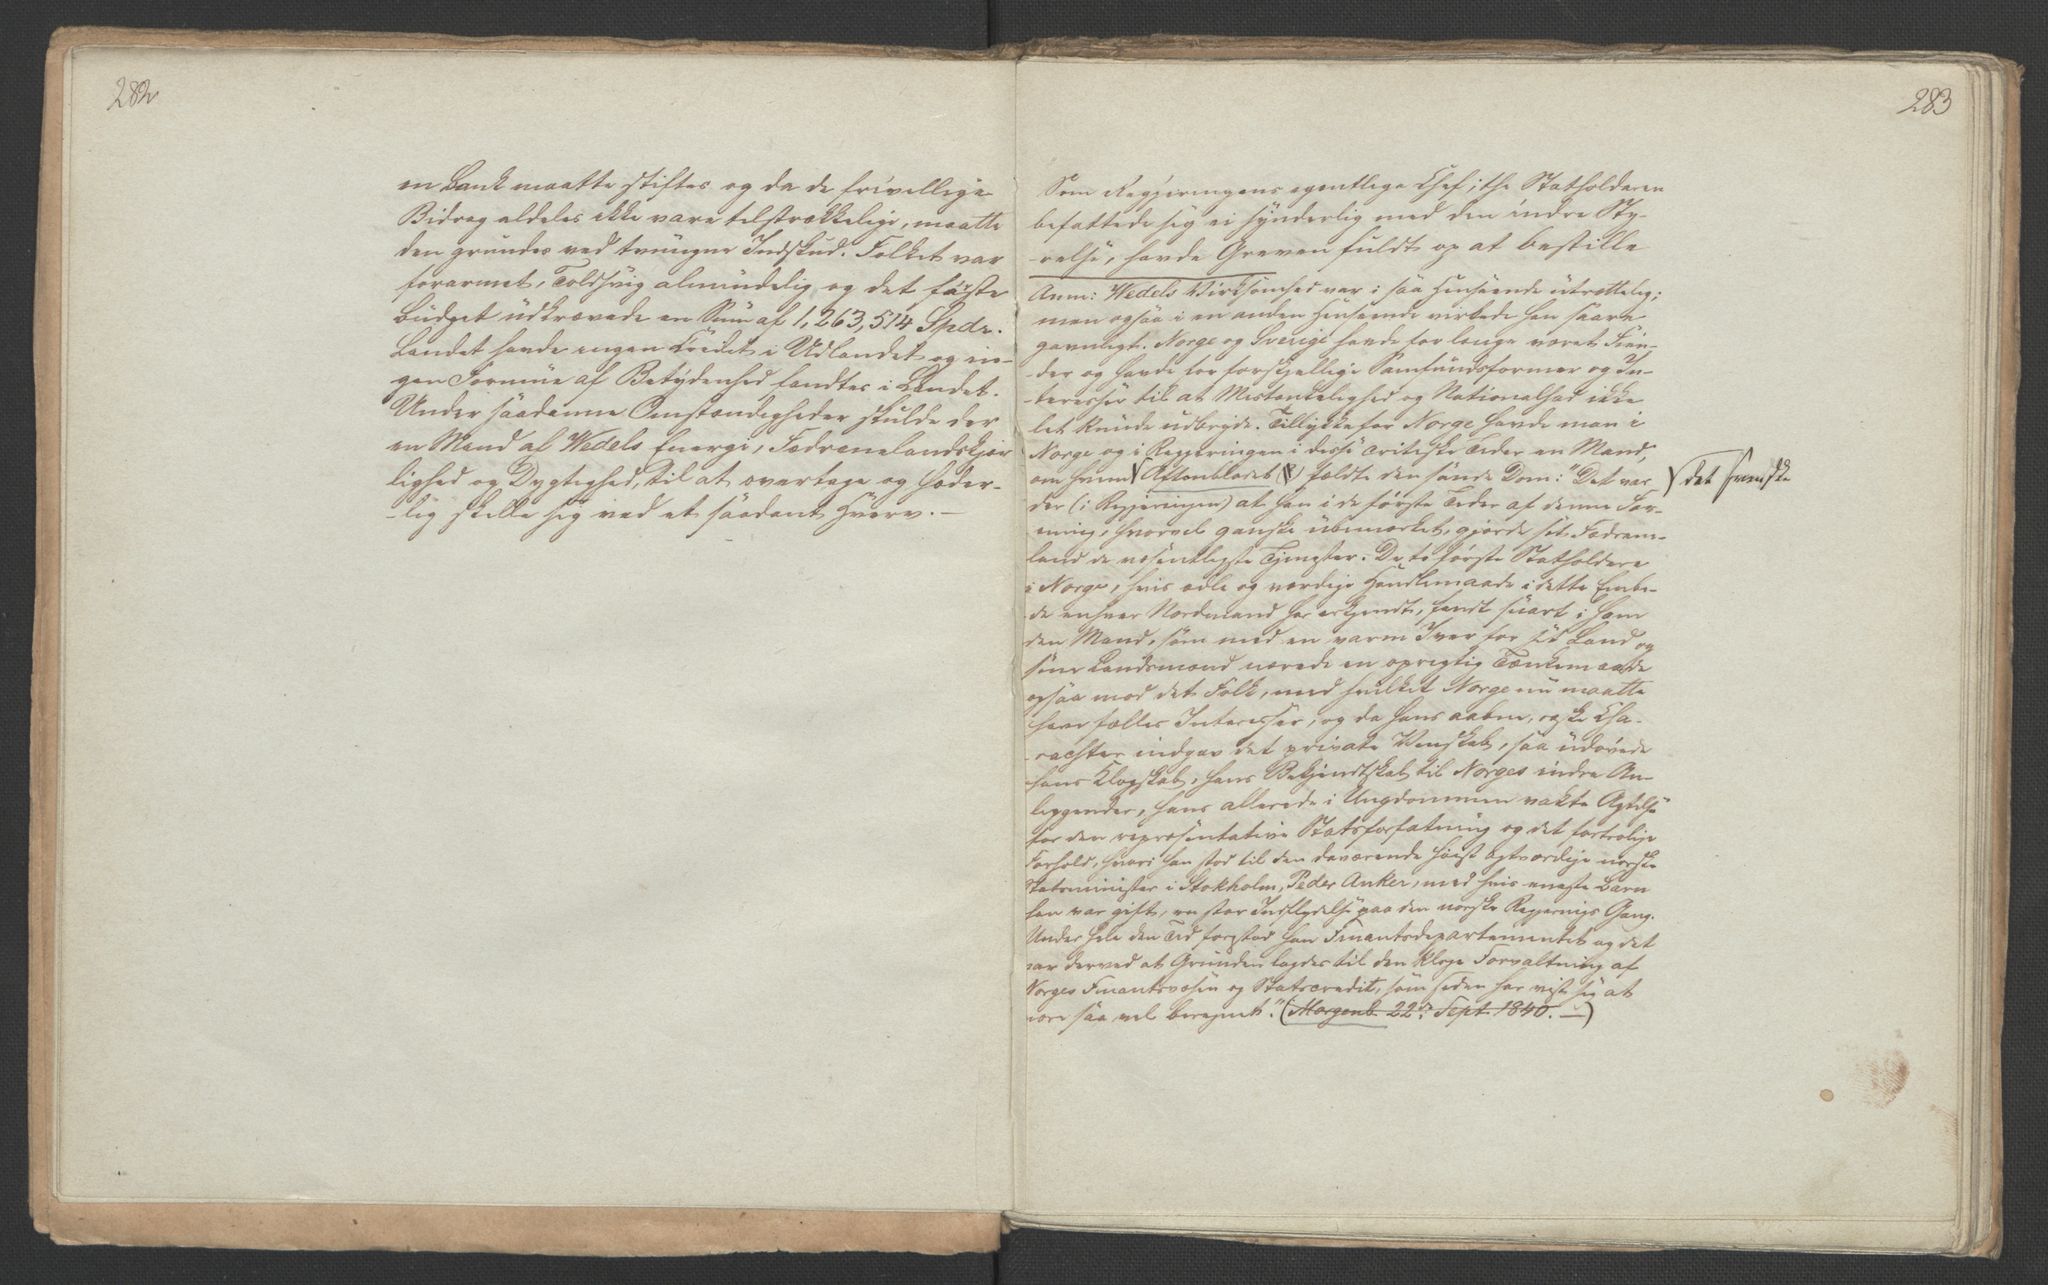 282
en Bank maatte stiftes og da de frivellige
Bidrag aldeles ikke vare telstrækkelige, maatte
den grundes ved tvungne Indskud. Folket var
forarmet, Toldsvig almindelig og det første
Budget udkrævede en Sum af 1,263,514 Spdr.
Landet havde ingen Credit i Udlandet og in-
gen Formue af Betydenhed fandtes i Landet.
Under saadanne Omstændigheder skulde der
en Mand af Wedels Energi, Fædrenelandskjær
lighed og Dygtighed, til at overtage og hæder-
-lig skille sig ved et saadant Hverv. —
283
Som Regjeringens egentlige Chef, thi Statholderen
befattede sig ei synderlig med den indre Sty-
-relse, havde Greven fuldt op at bestille
Anm: Wedels Virksomhed var i saa Henseende utrættelig;
men ogsaa i en anden Henseende virkede han saare
gavnligt. Norge og Sverige havde for længe været Fien-
-der og havde for forskjellige Samfundsformer og In-
-teresser til at Mistænkelighed og Nationalhad ikke
let kunde udbryde. Tillykke for Norge havde man i
Norge og i Regjeringen i disse critiske Tider en Mand,
om hvem √ Aftonbladet fældte den sande Dom: "Det var
√ det svenske
der (i Regjeringen) at han i de første Tider af denne For-
ening, hvorvel ganske ubemærket, gjorde sit Fædrene-
land de væsentligste Tjenester. De to første Statholdere
i Norge, hvis ædle og værdige Handlemaade i dette Embe-
-de enhver Nordmand har erkjendt, fandt snart i ham
den Mand, som med en varm Iver for sit Land og
sine Landsmænd nærede en oprigtig Tænkemaade
ogsaa mod det Folk, med hvilket Norge nu maatte
have fælles Interesser, og da hans aabne, raske Cha-
-racter indgav det private Venskab, saa udøvede
hans Klogskab, hans Bekjendtskab til Norges indre An-
liggender, hans allerede i Ungdommen vakte Agtelse
for den repræsentative Statsforfatning og det fortrolige
Forhold, hvori han stod til den daværende høist agtværdige norske
Statsminister i Stokholm, Peder Anker, med hvis eneste Barn
han var gift, en stor Indflydelse paa den norske Regjerings Gang.
Under hele den Tid forestod han Finantsdepartementet og det
var derved at Grunden lagdes til den kloge Forvaltning af
Norges Finantsvæsen og Statscredit, som siden har vist sig at
være saa vel beregnet." (Morgenb. 22de Sept 1840. —)